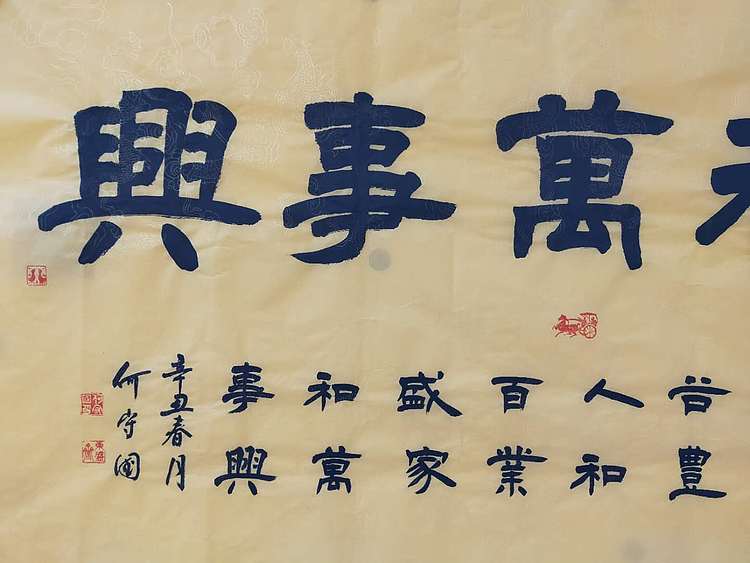 萬事興
谷豐
人和
百業
盛家
和萬
事興
辛丑春月
何守國